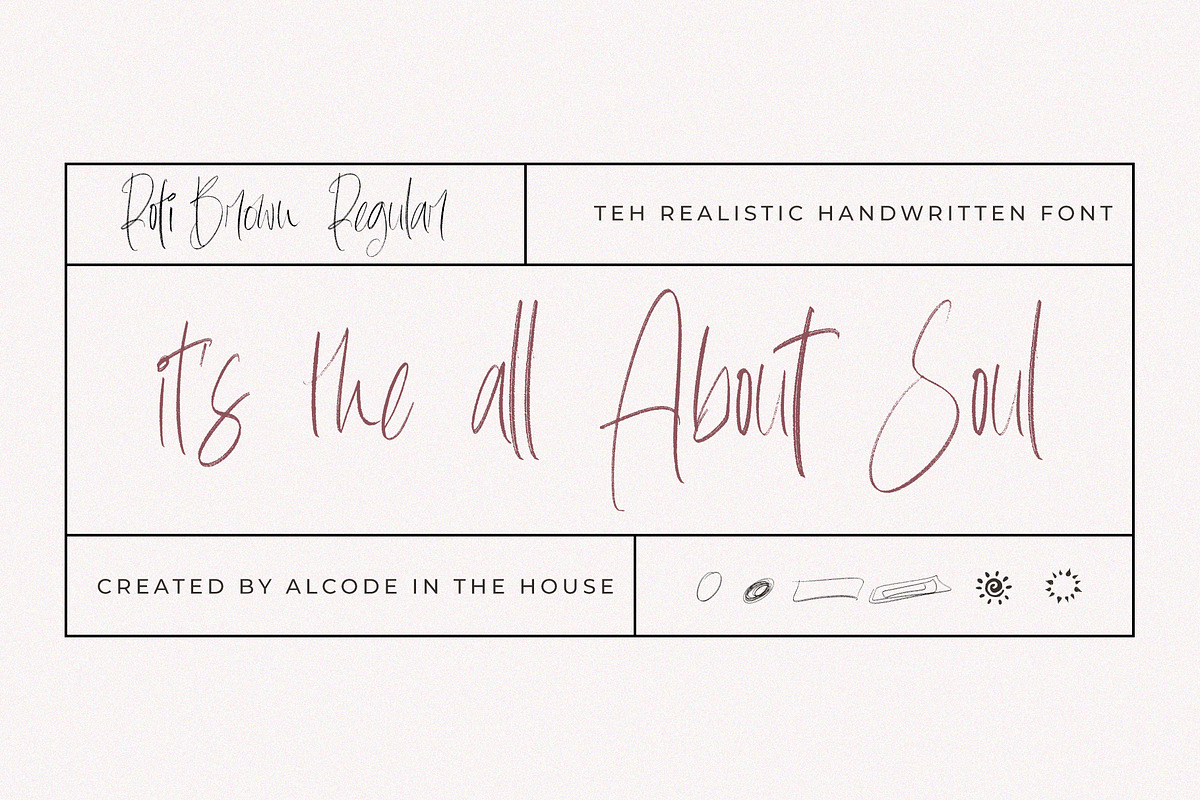 Roti Brown Regular
TEH REALISTIC HANDWRITTEN FONT
it's the all About Soul
CREATED BY ALCODE IN THE HOUSE